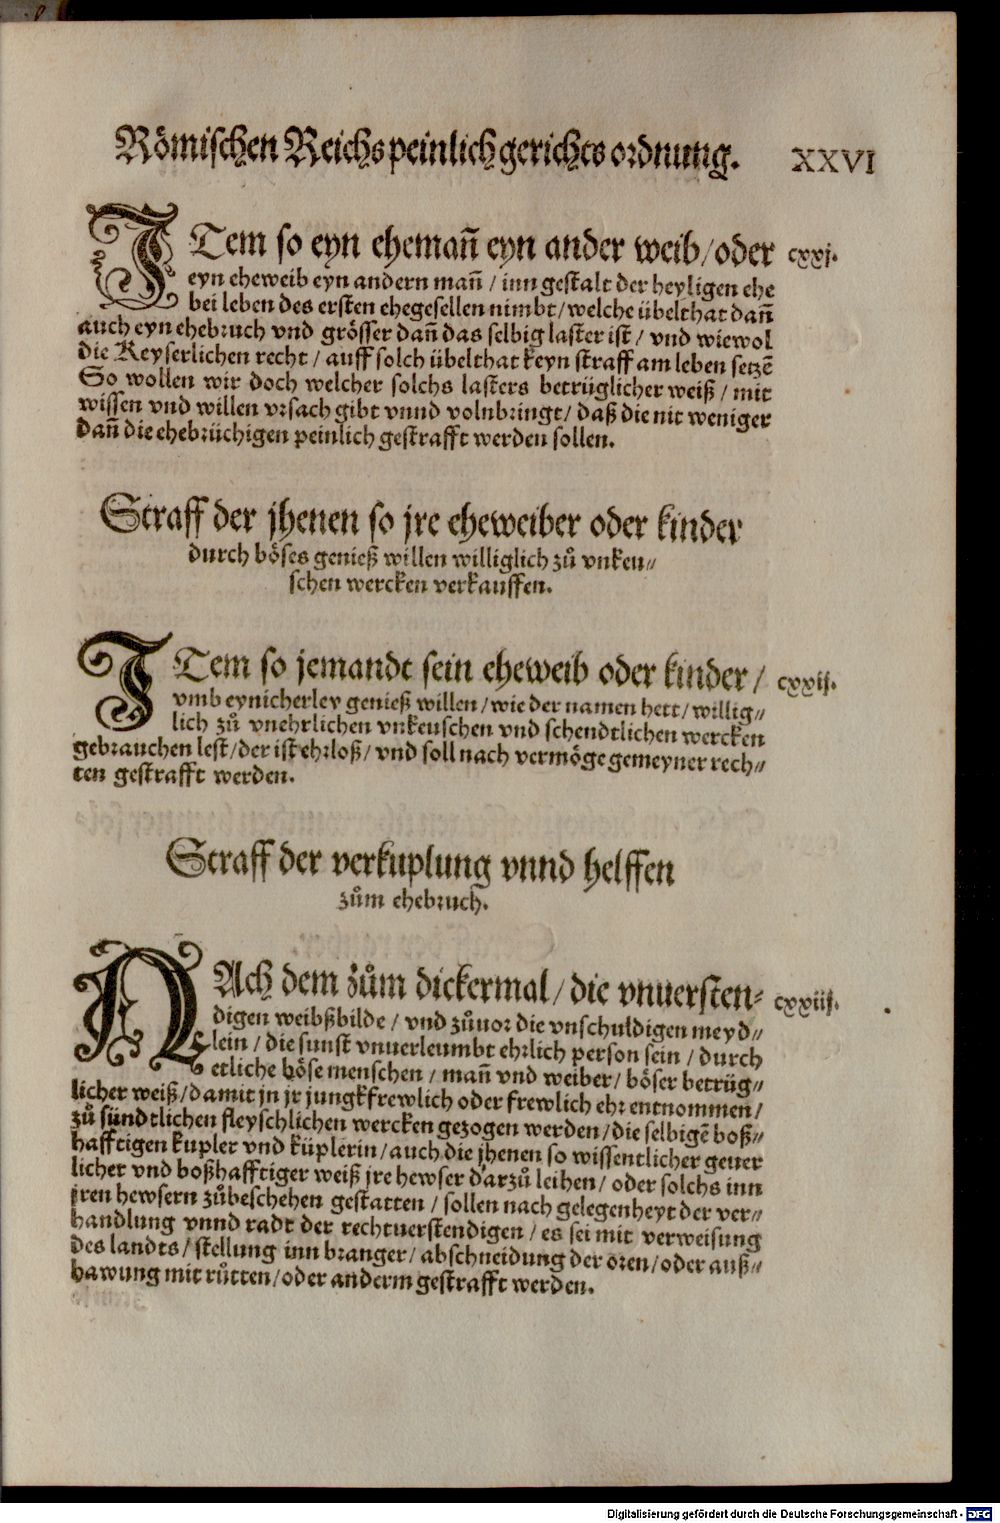 Römischen Reichs peinlich gerichts ordnung. XXVI
ITem so eyn ehemañ eyn ander weib / oder cxxj.
eyn eheweib eyn andern mañ / inn gestalt der heyligen ehe
bei leben des ersten ehegesellen nimbt / welche übelthat dañ
auch eyn ehebruch vnd grösser dañ das selbig laster ist / vnd wiewol
die Keyserlichen recht / auff solch übelthat keyn straff am leben setzẽ
So wollen wir doch welcher solchs lasters betrüglicher weiß / mit
wissen vnd willen vrsach gibt vnnd volnbringt / daß die nit weniger
dañ die ehebrüchigen peinlich gestrafft werden sollen.
Straff der jhenen so jre eheweiber oder kinder
durch böses genieß willen williglich zů vnkeu⸗
schen wercken verkauffen.
ITem so jemandt sein eheweib oder kinder / cxxij.
vmb eynicherley genieß willen / wie der namen hett / willig⸗
lich zů vnehrlichen vnkeuschen vnd schendtlichen wercken
gebrauchen lest / der ist ehrloß / vnd soll nach vermöge gemeyner rech⸗
ten gestrafft werden.
Straff der verkuplung vnnd helffen
zům ehebruch.
NAch dem zům dickermal / die vnuersten⸗ cxxiij.
digen weibßbilde / vnd zůuor die vnschuldigen meyd⸗
lein / die sunst vnuerleumbt ehrlich person sein / durch
etliche böse menschen / mañ vnd weiber / böser betrüg⸗
licher weiß / damit jn jr jungkfrewlich oder frewlich ehr entnommen /
zů sündtlichen fleyschlichen wercken gezogen werden / die selbigẽ boß⸗
hafftigen kupler vnd küplerin / auch die jhenen so wissentlicher geuer
licher vnd boßhafftiger weiß jre hewser darzů leihen / oder solchs inn
jren hewsern zůbeschehen gestatten / sollen nach gelegenheyt der ver⸗
handlung vnnd radt der rechtuerstendigen / es sei mit verweisung
des landts / stellung inn branger / abschneidung der oren / oder auß⸗
hawung mit růtten / oder anderm gestrafft werden.
Digitalisierung gefördert durch die Deutsche Forschungsgemeinschaft - DFG